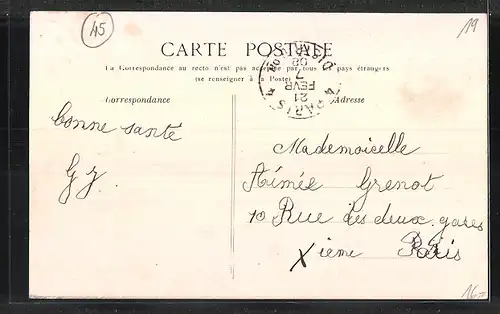 45
19
CARTE POSTALE
La Correspondance au recto n'est pas acceptée par tous les pays étrangers
(se renseigner à la Poste)
Correspondance
Adresse
PARIS
DISTRIBUTION
7
21
FEVR
08
bonne santé
G J.
Mademoiselle
Aimée Grenot
10 Rue des deux gares
Xieme Paris
16.=